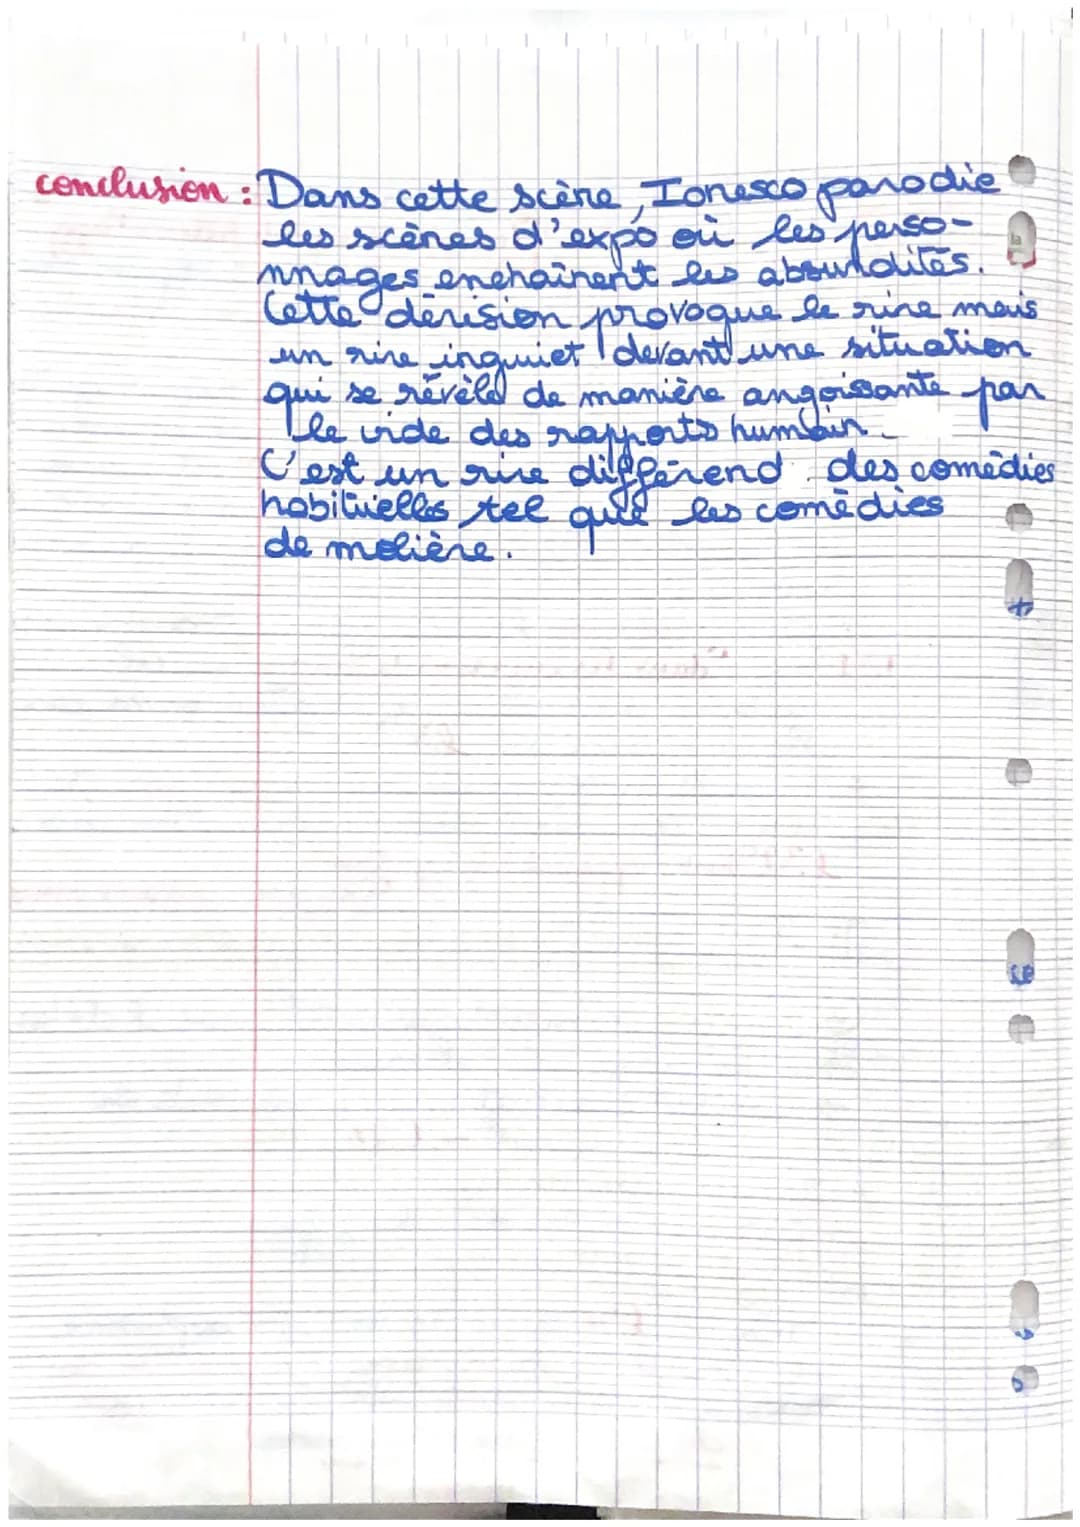 conclusion : Dans cette scène, Ionesco parodie
les scènes d'expo où les perso-
nnages enchaînent les absurdités.
Cette dérision provoque le rire mais
un rire inquiet devant une situation
qui se révèle de manière angoissante par
le vide des rapports humain.
C'est un rire différend des comédies
habituelles tel que les comédies
de molière.